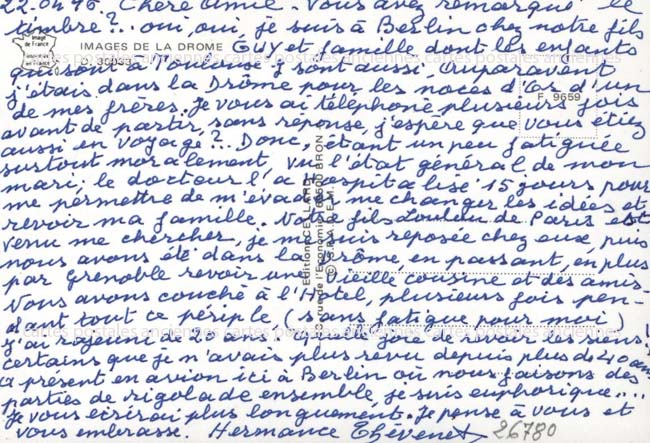 22.04.96 Chère amie. Vous avez remarqué le
timbre?.. oui, oui, je suis à Berlin chez notre fils
Image de France
IMAGES DE LA DROME
GUY et famille, dont les enfants
qui sont à Toulouse, y sont aussi. Auparavent
j'étais dans la Drôme pour les noces d'or d'un
F. 9659
de mes frères. Je vous ai téléphoné plusieurs fois
avant de partir, sans réponse, j'espère que vous étiez
aussi en voyage?.. Donc, étant un peu fatiguée
surtout moralement, vu l'état général de mon
mari, le docteur l'a hospitalisé 15 jours pour
me permettre de m'évader, me changer les idées et
revoir ma famille. Notre fils Loulou de Paris est
venu me chercher, je me suis reposée chez eux, puis
nous avons été dans la Drôme, en passant, en plus
par Grenoble revoir une vieille cousine et des amis.
Nous avons couché à l'Hôtel, plusieurs fois pen-
dant tout ce périple (sans fatigue pour moi)
J'ai rajeuni de 20 ans! Quelle joie de revoir les siens!
certains que je n'avais plus revu depuis plus de 40 ans
A présent en avion ici à Berlin où nous faisons des
parties de rigolade ensemble, je suis euphorique....
Je vous écrirai plus longuement. Je pense à vous et
vous embrasse. Hermance Thévenet 26780
cartes postales anciennes